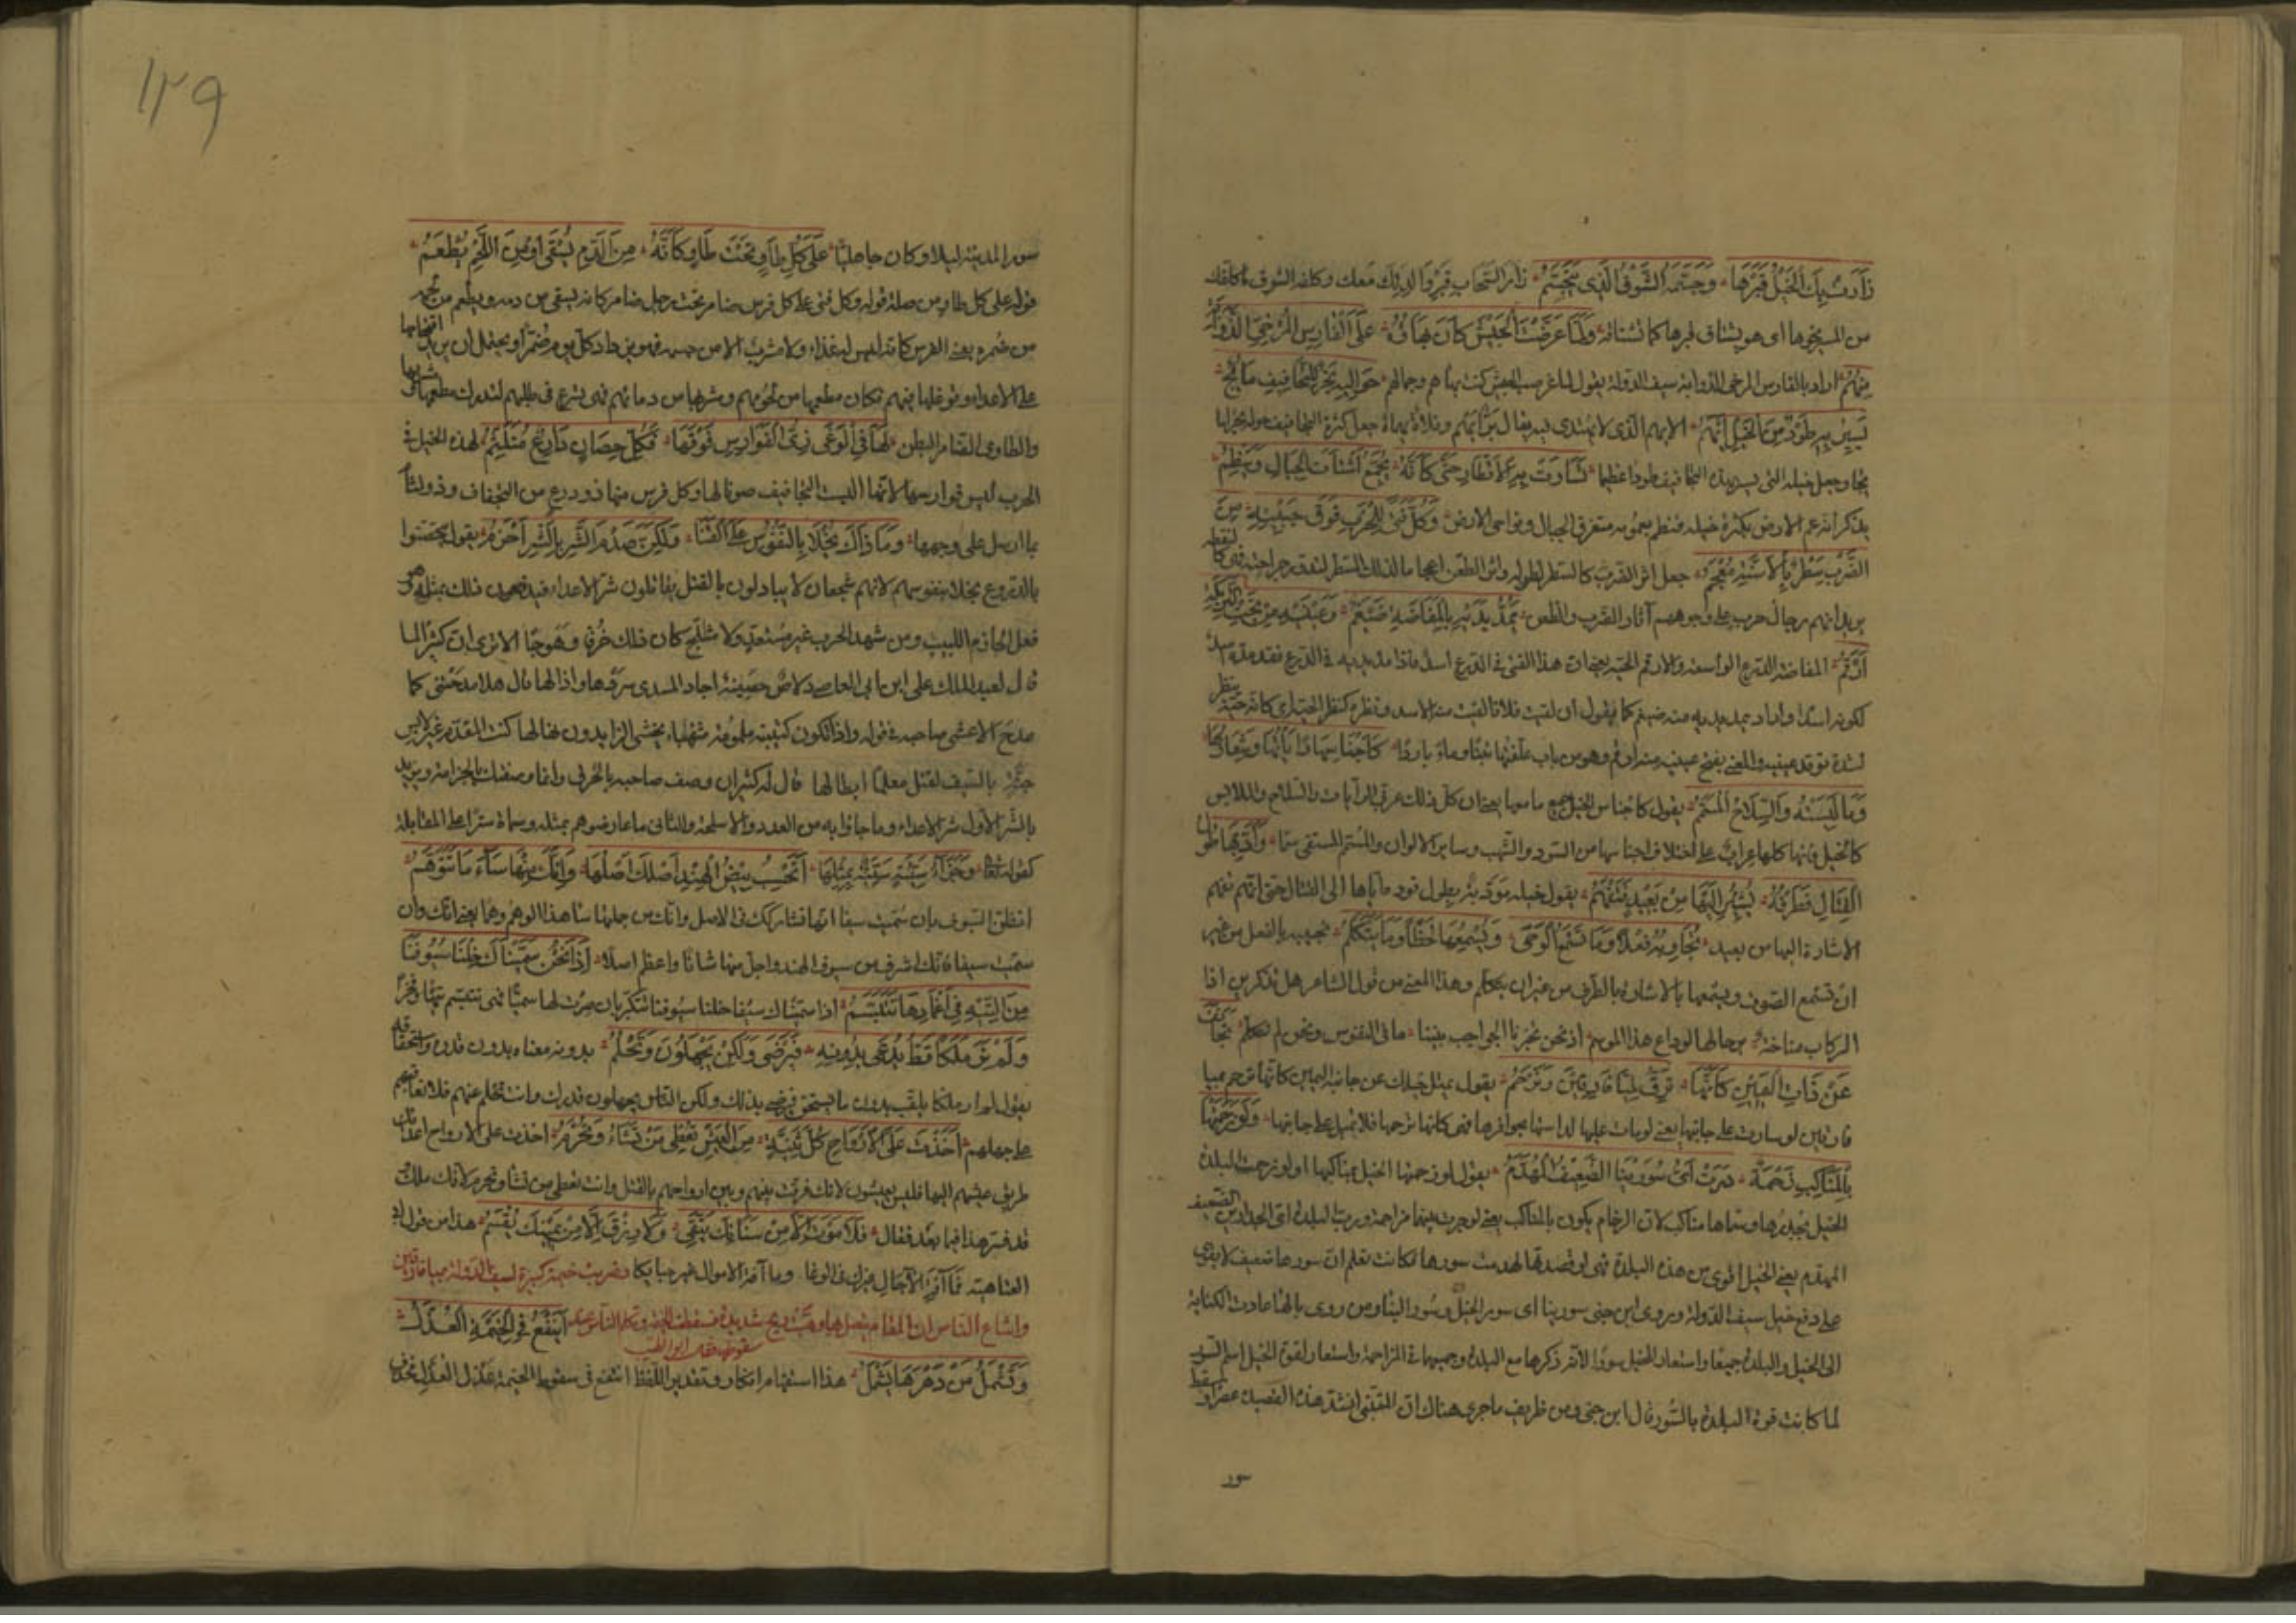 زارتك بك الخيل قبرها وجشمه الشوق الذي يتجشم زار السحاب قبر والدتك معك وكلفه الشوق ما كلفك
من المسير نحوها اى هو يشتاق قبرها كما تشتاقه ولما عرضت الجيش كان بهاؤه على الفارس المرخى الذؤابة
منهم اراد بالفارس المرخى الذؤابة سيف الدولة يقول لما عرضت الجيش كنت بهاءهم وجمالهم حواليه بحر للتجافيف مائج
يسير به طود من الخيل ايهم الايهم الذى لا يهتدى فيه يقال بر ايهم وفلاة يهماء جعل كثرة التجافيف حوله بحرا
مائجا وجعل خيله التى يسير بهذه التجافيف طودا عظيما تساوت به الاقطار حتى كانه يجمع اشتات الجبال وينظم
يذكر انه عم الارض بكثرة خيله فنظم بعمومه متفرق الجبال ونواحى الارض وكل فتى للحرب فوق جبينه من
الضرب سطر بالاسنة معجم جعل اثر الضرب كالسطر لطوله واثر الطعن اعجاما لذلك السطر
يريد انهم رجال حرب على وجوههم آثار الضرب والطعن يمد يديه فى المفاضة ضيغم وعينيه من تحت التريكة
ارقم المفاضة الدرع الواسعة والارقم الحية يعنى ان هذا الفتى فى الدرع اسد فاذا مد يديه فى الدرع فقد مد يديه اسد
لشدة توقد عينيه والمعنى يفتح عينيه منه ارقم وهو من باب علفتها تبنا وماء باردا كاجناسها راياتها وشعارها
وما لبسته والسلاح المسمم يقول كاجناس الخيل جميع ما معها يعنى ان كل ذلك عربى الرايات والسلاح والملابس
كالخيل فانها كلها عراب على اختلاف اجناسها من السود والشهب وساير الالوان والمسمم المسقى سما وادبها طول
القتال فطرفه يشير اليها من بعيد فتفهم يقول خيله مؤدبة بطول قوده اياها الى القتال حتى انهم تفهم
الاشارة اليها من بعيد تجاوبه فعلا وما تسمع الوحى ويسمعها لحظا وما يتكلم تجيبه بالفعل من غير
ان تسمع الصوت ويسمعها بالاشارة بالطرف من غير ان يتكلم وهذا المعنى من قول الشاعر هل تذكرين اذا
الركاب مناخة برحالها لوداع هذا الموسم اذ نحن تخبرنا الحواجب بيننا ما فى النفوس ونحن لم نتكلم تجانف
عن ذات اليمين كانها ترق لميافارقين وترحم يقول تميل خيلك عن جانب اليمين كانها ترحم ميا
فارقين لو سارت على جانبها يعنى لو مات عليها لداستها بحوافرها فهى كانها ترحمها فلا تميل على جانبها ولو زحمتها
بالمناكب زحمة درت اى سورينا الضعيف المهدم يقول لو زحمتها الخيل بمناكبها او لو زحمت البلدة
الخيل بجدرها وسماها مناكب لان الزحام يكون بالمناكب يعنى لو جرت بينهما مزاحمة درت البلدة اى الجدارين الضعيف
المهدم يعنى الخيل اقوى من هذه البلدة فهى لو قصدتها لهدمت سورها فكانت تعلم ان سورها ضعيف لا يقوى
على دفع خيل سيف الدولة ويروى ابن جنى سورينا اى سور الخيل وسور البناء ومن روى بالهاء عادت الكناية
الى الخيل والبلدة جميعا واستعار للخيل سورا لانه ذكرها مع البلدة وجمعهما فى المزاحمة واستعار لقوة الخيل اسم السور
لما كانت قوة البلدة بالسور قال ابن جنى ومن ظريف ما جرى هناك ان المتنبى انشد هذه القصيدة عصرا وسقط
سور
١٢٩
سور المدينة ليلا وكان جاهليا على كل طاو تحت طاو كانه من الدم يسقى او من اللحم يطعم
قوله على كل طاو من صلة قوله وكل فتى على كل فرس ضامر تحت رجل ضامر كانه يسقى من دمه ويطعم من لحمه
من ضمره يعنى الفرس كانه ليس له غذاء ولا مشرب الا من جسمه فهو يزداد كل يوم ضمرا ويحتمل ان يريد اقتحامها
على الاعداء وتوغلها فيهم فكان مطعمها من لحومهم وشربها من دمائهم فهى تسرع فى طلبهم لتدرك مطعمها ومشربها
والطاوى الضامر البطن لها فى الوغى زى الفوارس فوقها فكل حصان دارع متلثم لهذه الخيل فى
الحرب لبس فوارسها لانها البست التجافيف صونا لها وكل فرس منها ذو درع من التجفاف وذو لثام
بما ارسل على وجهها وما ذاك بخلا بالنفوس على القنا ولكن صدم الشر بالشر احزم يقول تحصنوا
بالدروع لا بخلا بنفوسهم لانهم شجعان لا يبالون بالقتل يقاتلون شر الاعداء فيدفعون ذلك بمثله وهو
فعل الحازم اللبيب ومن شهد الحرب غير مستعد ولا متسلح كان ذلك خرقا وهوجا الا ترى ان كثيرا لما
قال لعبد الملك على ابن ابى العاصى دلاص حصينة اجاد المسدى سردها واذالها قال هلا مدحتنى كما
مدح الاعشى صاحبه فى قوله واذا تكون كتيبة ملمومة شهباء يخشى الزايدون نهالها كنت المقدم غير لابس
جنة بالسيف تقتل معلما ابطالها قال له كثير ان وصف صاحبه بالخرق وانا وصفتك بالحزامة ويريد
بالشر الاول شر الاعداء وما جاؤا به من العدد والاسلحة والثانى ما عارضوهم بمثله وسماه شرا على المقابلة
كقوله تعالى وجزاء سيئة سيئة مثلها اتحسب بيض الهند اصلك اصلها وانك منها ساء ما تتوهم
اتظن السيوف بان سميت سيفا انها تشاركك فى الاصل وانك من جملتها ساء هذا الوهم وهما يعنى انك وان
سميت سيفا فانك اشرف من سيوف الهند واجل منها شانا واعظم اصلا اذا نحن سميناك خلنا سيوفنا
من التيه فى اغمادها تتبسم اذا سميناك سيفا خلنا سيوفنا تتكبر بان صرت لها سميا فهى تتبسم تيها وفخرا
ولم نر ملكا قط يدعى بدونه فيرضى ولكن يجهلون وتحلم بدونه معناه بدون قدره واستحقاقه
يقول لم ار ملكا يلقب بدون ما يستحق فيرضى بذلك ولكن الناس يجهلون قدرك وانت تحلم عنهم فلا تعاقبهم
على جهلهم اخذت على الارواح كل ثنية من العيش تعطى من تشاء وتحرم اخذت على الارواح اعدائك
طريق عيشهم اليها فليس يعيشون لانك فرقت بينهم وبين ارواحهم بالقتل وانت تعطى من تشاء وتحرم لانك ملك
قد فسر هذا فيما بعد فقال فلا موت الا من سنانك يتقى ولا رزق الا من يمينك يقسم هذا من قول ابى
العتاهية فما آفة الآجال غيرك فى الوغا وما آفة الاموال غير حبائكا وضربت خيمة كبيرة لسيف الدولة بميافارقين
واشاع الناس ان المقام يتصل بها وهبت ريح شديدة فسقطت الخيمة وتكلم الناس عند
سقوطها فقال ابو الطيب
اينفع فى الخيمة العذل
وتشمل من دهرها يشمل هذا استفهام انكار وتقدير اللفظ اتنفع فى سقوط الخيمة عذل العذل